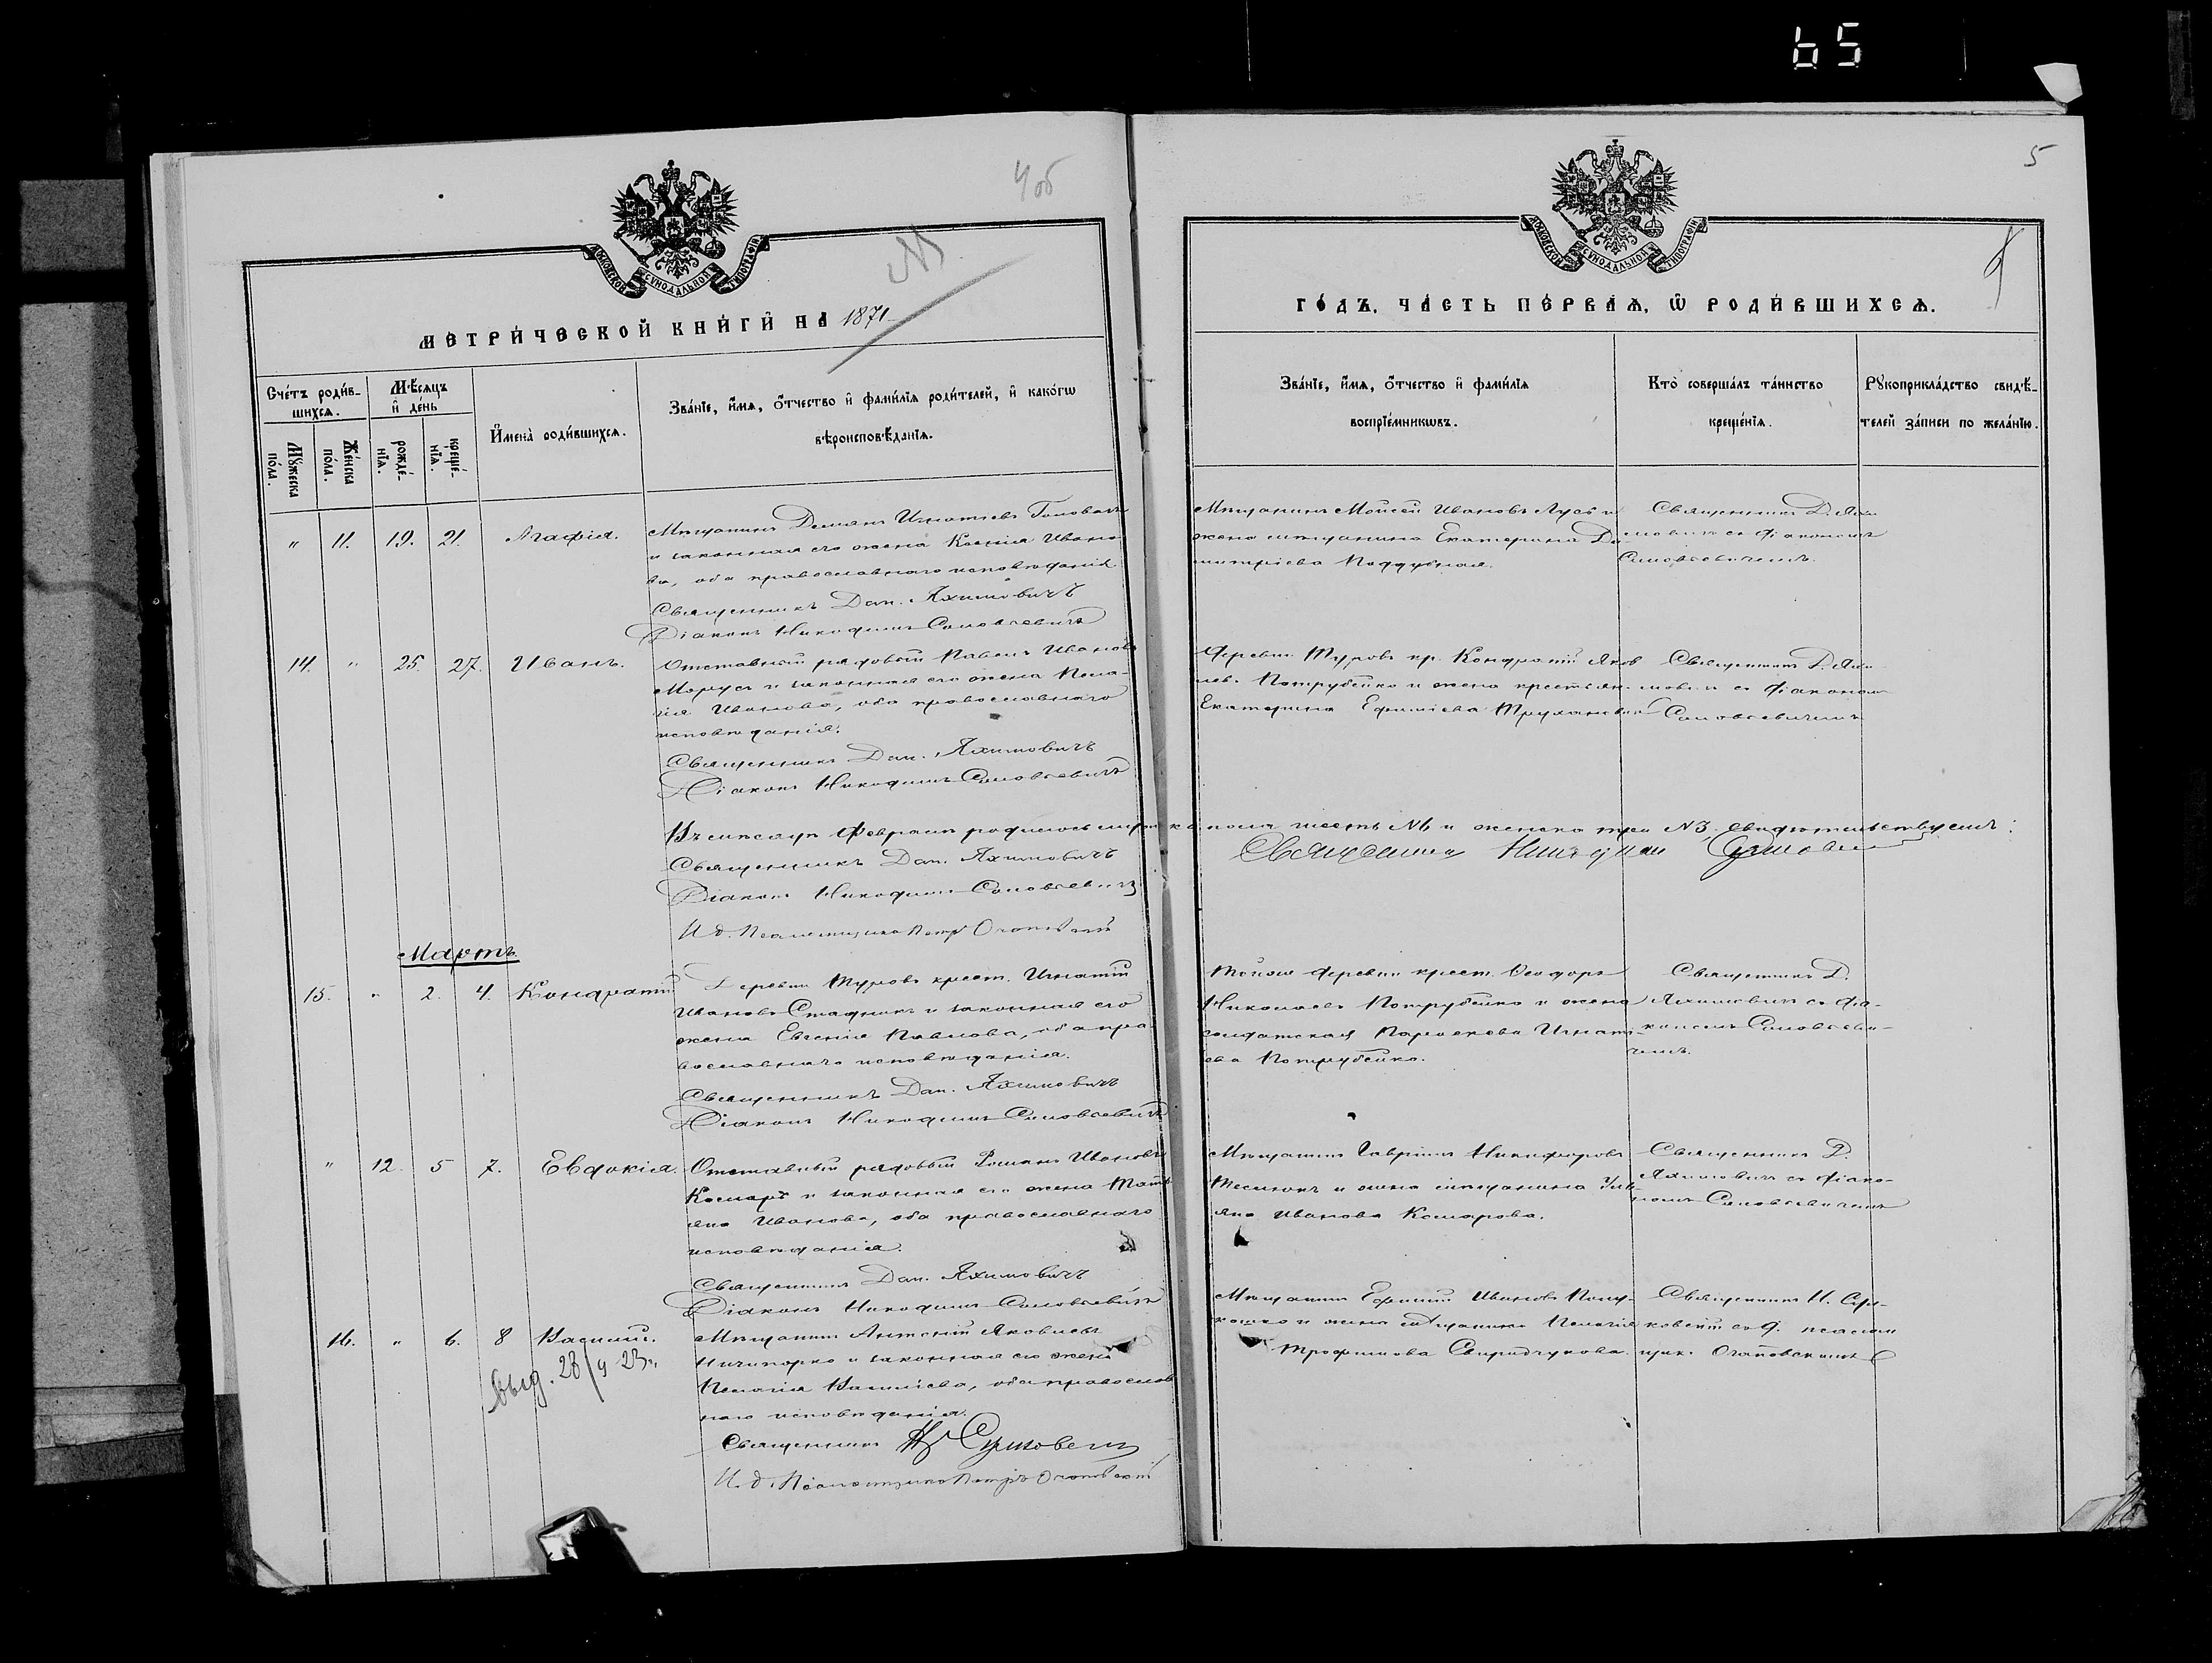 65
4об
5
МОСКОВСКОЙ СѴНОДАЛЬНОЙ ТИПОГРАФІИ
МОСКОВСКОЙ СѴНОДАЛЬНОЙ ТИПОГРАФІИ
МЕТРИ́ЧЕСКОЙ КНИ́ГИ НА 1871
ГО́ДЪ, ЧА́СТЬ ПЕ́РВАѦ, Ѿ РОДИ́ВШИХСѦ.
Сче́тъ роди́в-
шихсѧ.
Мꙋ́жеска по́ла.
Же́нска по́ла.
Мѣ́сѧцъ
и҆ де́нь
рожде́-
нїѧ.
креще́-
нїѧ.
И҆мена̀ роди́вшихсѧ.
Зва́нїе, и҆́мѧ, о҆́тчество и҆ фами́лїѧ роди́телей, и҆ како́гѡ
вѣроисповѣ́данїѧ.
Зва́нїе, и҆́мѧ, о҆́тчество и҆ фами́лїѧ
воспрїе́мникѡвъ.
Кто̀ соверша́лъ та́инство
креще́нїѧ.
Рꙋкоприкла́дство свидѣ́-
телей за́писи по жела́нїю.
" 11. 19. 21. Агафія.
Мѣщанинъ Демьянъ Игнатьевъ
и законная его жена Ксенія Ивано
ва, оба православнаго исповѣданія
Священникъ Дан. Яхимовичъ
Діаконъ Никодимъ Самовсевичъ
Мѣщанинъ Мойсей Ивановъ Лусь и
жена мѣщанина Екатерина Ди-
митріева Поддубная.
Священникъ Д. Яхи
мовичъ съ діакономъ
Самовсевичемъ.
14. " 25. 27. Иванъ.
Отставный рядовый Павелъ Ивановъ
и законная его жена Пела-
гія Иванова, оба православнаго
исповѣданія.
Священникъ Дан. Яхимовичъ
Діаконъ Никодимъ Самовсевичъ
Деревни Туровъ кр. Кондратій Яков
левъ Потрубейко и жена крестьян.
Екатерина Ефиміева
Священникъ Д. Яхи
мовичъ съ діаконом
Самовсевичемъ
Въ мѣсяцѣ Февралѣ родилось мужеска пола шесть №6 и женска три №3. Свидѣтельствуемъ:
Священникъ Дан. Яхимовичъ
Діаконъ Никодимъ Самовсевичъ
И. д. Псаломщика Петръ
Священникъ
Мартъ
15. " 2. 4. Кондратій
Деревни Туровъ крест. Игнатій
Ивановъ Стадникъ и законная его
жена Евгенія Павлова, оба пра
вославнаго исповѣданія.
Священникъ Дан. Яхимовичъ
Діаконъ Никодимъ Самовсевичъ
Тойже деревни крест. Ѳеодоръ
Николаевъ Потрубейко и жена
солдатская Параскева Игнать
ева Потрубейко.
Священникъ Д.
Яхимовичъ съ діа-
кономъ Самовсеви-
чемъ.
" 12. 5 7. Евдокія.
Отставный рядовый Романъ Ивановъ
Комаръ и законная его жена Тать
яна Иванова, оба православнаго
исповѣданія.
Священникъ Дан. Яхимовичъ
Діаконъ Никодимъ Самовсевичъ
Мѣщанинъ Гавріилъ Никифоровъ
и жена мѣщанина Уль
яна Иванова Комарова.
Священникъ Д.
Яхимовичъ съ діако-
номъ Самовсевичемъ
16. " 6. 8 Василій.
выд. 28/9 23 г.
Мѣщанинъ Антоній Яковлевъ
Ничипорко и законная его жена
Пелагія Василіева, оба православ
наго исповѣданія.
Священникъ
И. д. Псаломщика Петръ
Мѣщанинъ Ефимій Ивановъ
и жена мѣщанина Пелагія
Трофимова Свиридчукова.
Священникъ Н.